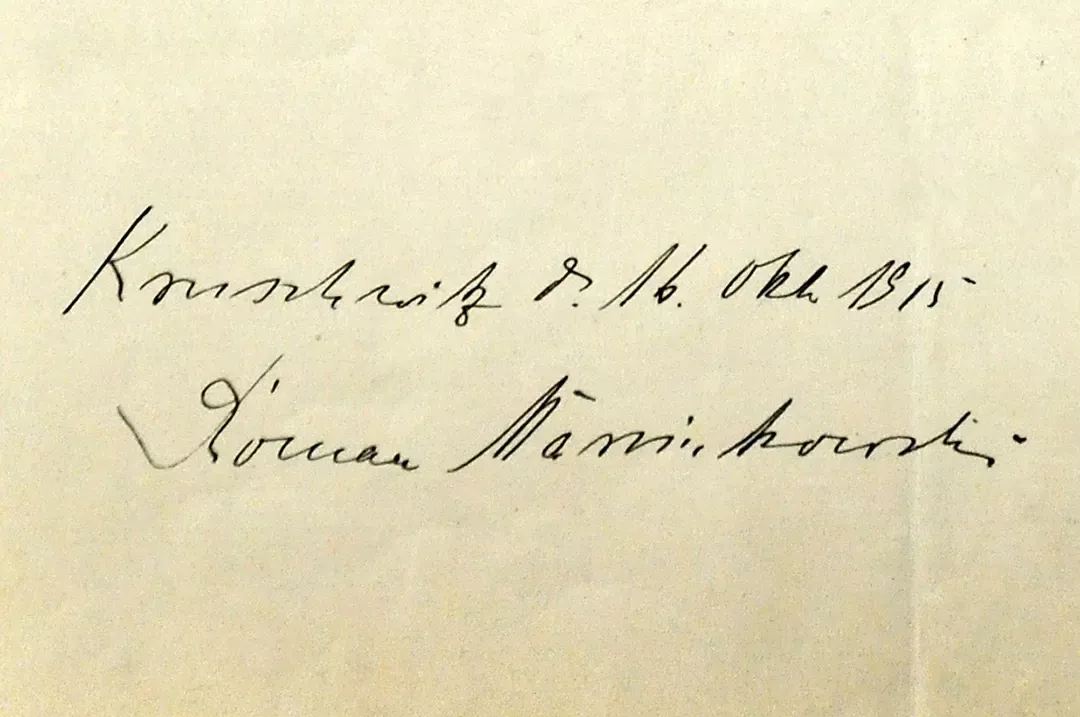 Kruschwitz d. 16. Okt 1915
Roman Marcinkowski